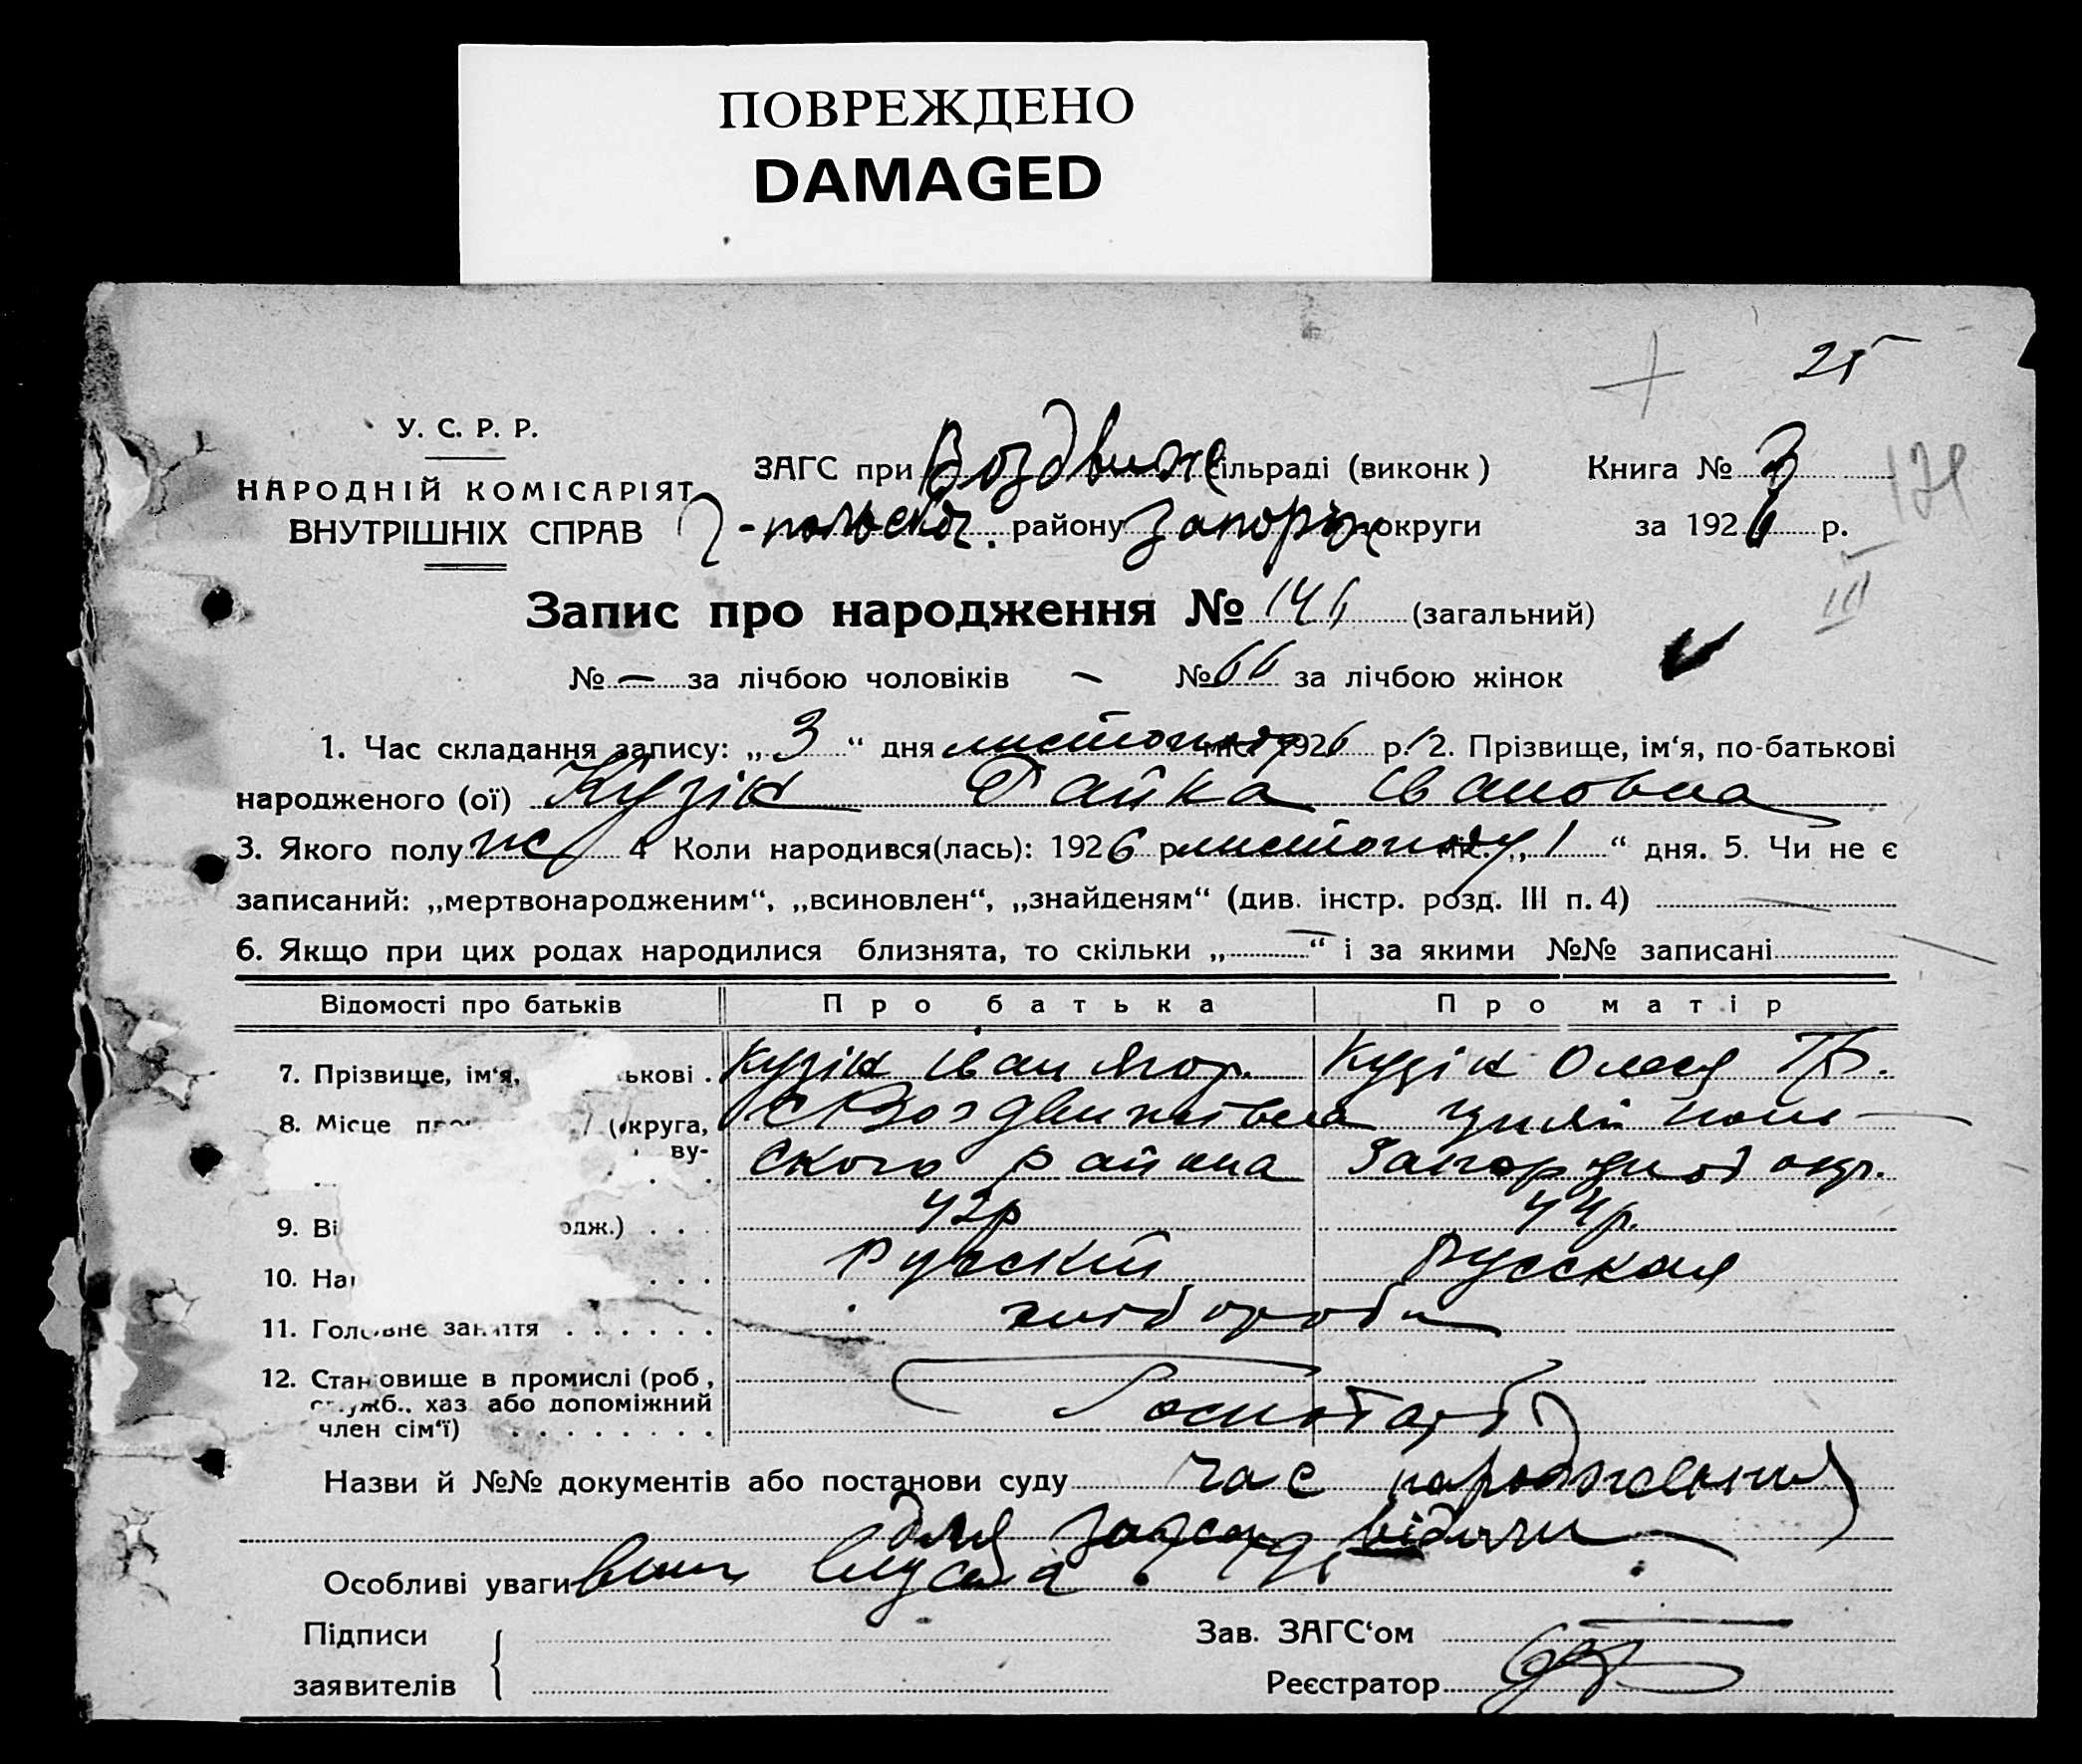 ПОВРЕЖДЕНО
DAMAGED
25
У. С. Р. Р.
НАРОДНІЙ КОМІСАРІЯТ
ВНУТРІШНІХ СПРАВ
ЗАГС при Воздвиж сільраді (виконк)
Книга № 3
171
району Запоріж округи
за 1926 р.
III
Запис про народження № 146 (загальний)
№ — за лічбою чоловіків — № 66 за лічбою жінок
1. Час складання запису: „ 3 “ дня листопаду міс. 1926 р. 2. Прізвище, ім‘я, по-батькові
народженого (ої) Кузік Райка Івановна
3. Якого полу ж 4 Коли народився(лась): 1926 р листопаду міс. „ 1 “ дня. 5. Чи не є
записаний: „мертвонародженим“, „всиновлен“, „знайденям“ (див. інстр. розд. III п. 4)
6. Якщо при цих родах народилися близнята, то скільки „ — “ і за якими №№ записані
Відомості про батьків Про батька Про матір
7. Прізвище, ім‘я, ькові . Кузік Іван Кузік Олена
8. Місце (округа, с Воздвижівка Гуляй поль
ву- ского района Запорізкої окр.
9. Ві одж.) . . 42р 44р.
10. На . . . Русский Русская
11. Головне заняття . . . . . . хлібороби
12. Становище в промислі (роб, служб., хаз або допоміжний член сім‘ї) . . . . . . . .
Назви й №№ документів або постанови суду час народження
для
Особливі уваги
Підписи заявителів
Зав. ЗАГС‘ом
Реєстратор